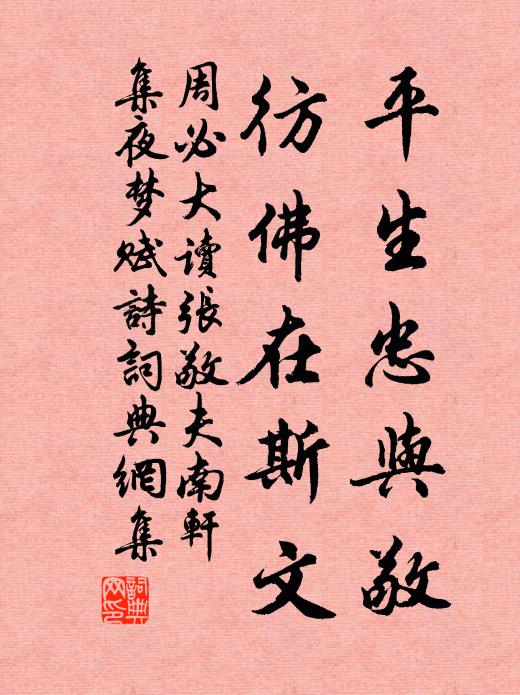 平生忠與敬
彷佛在斯文
周必大讀張敬夫南軒
集夜梦賦詩詞典網集
詞典网印